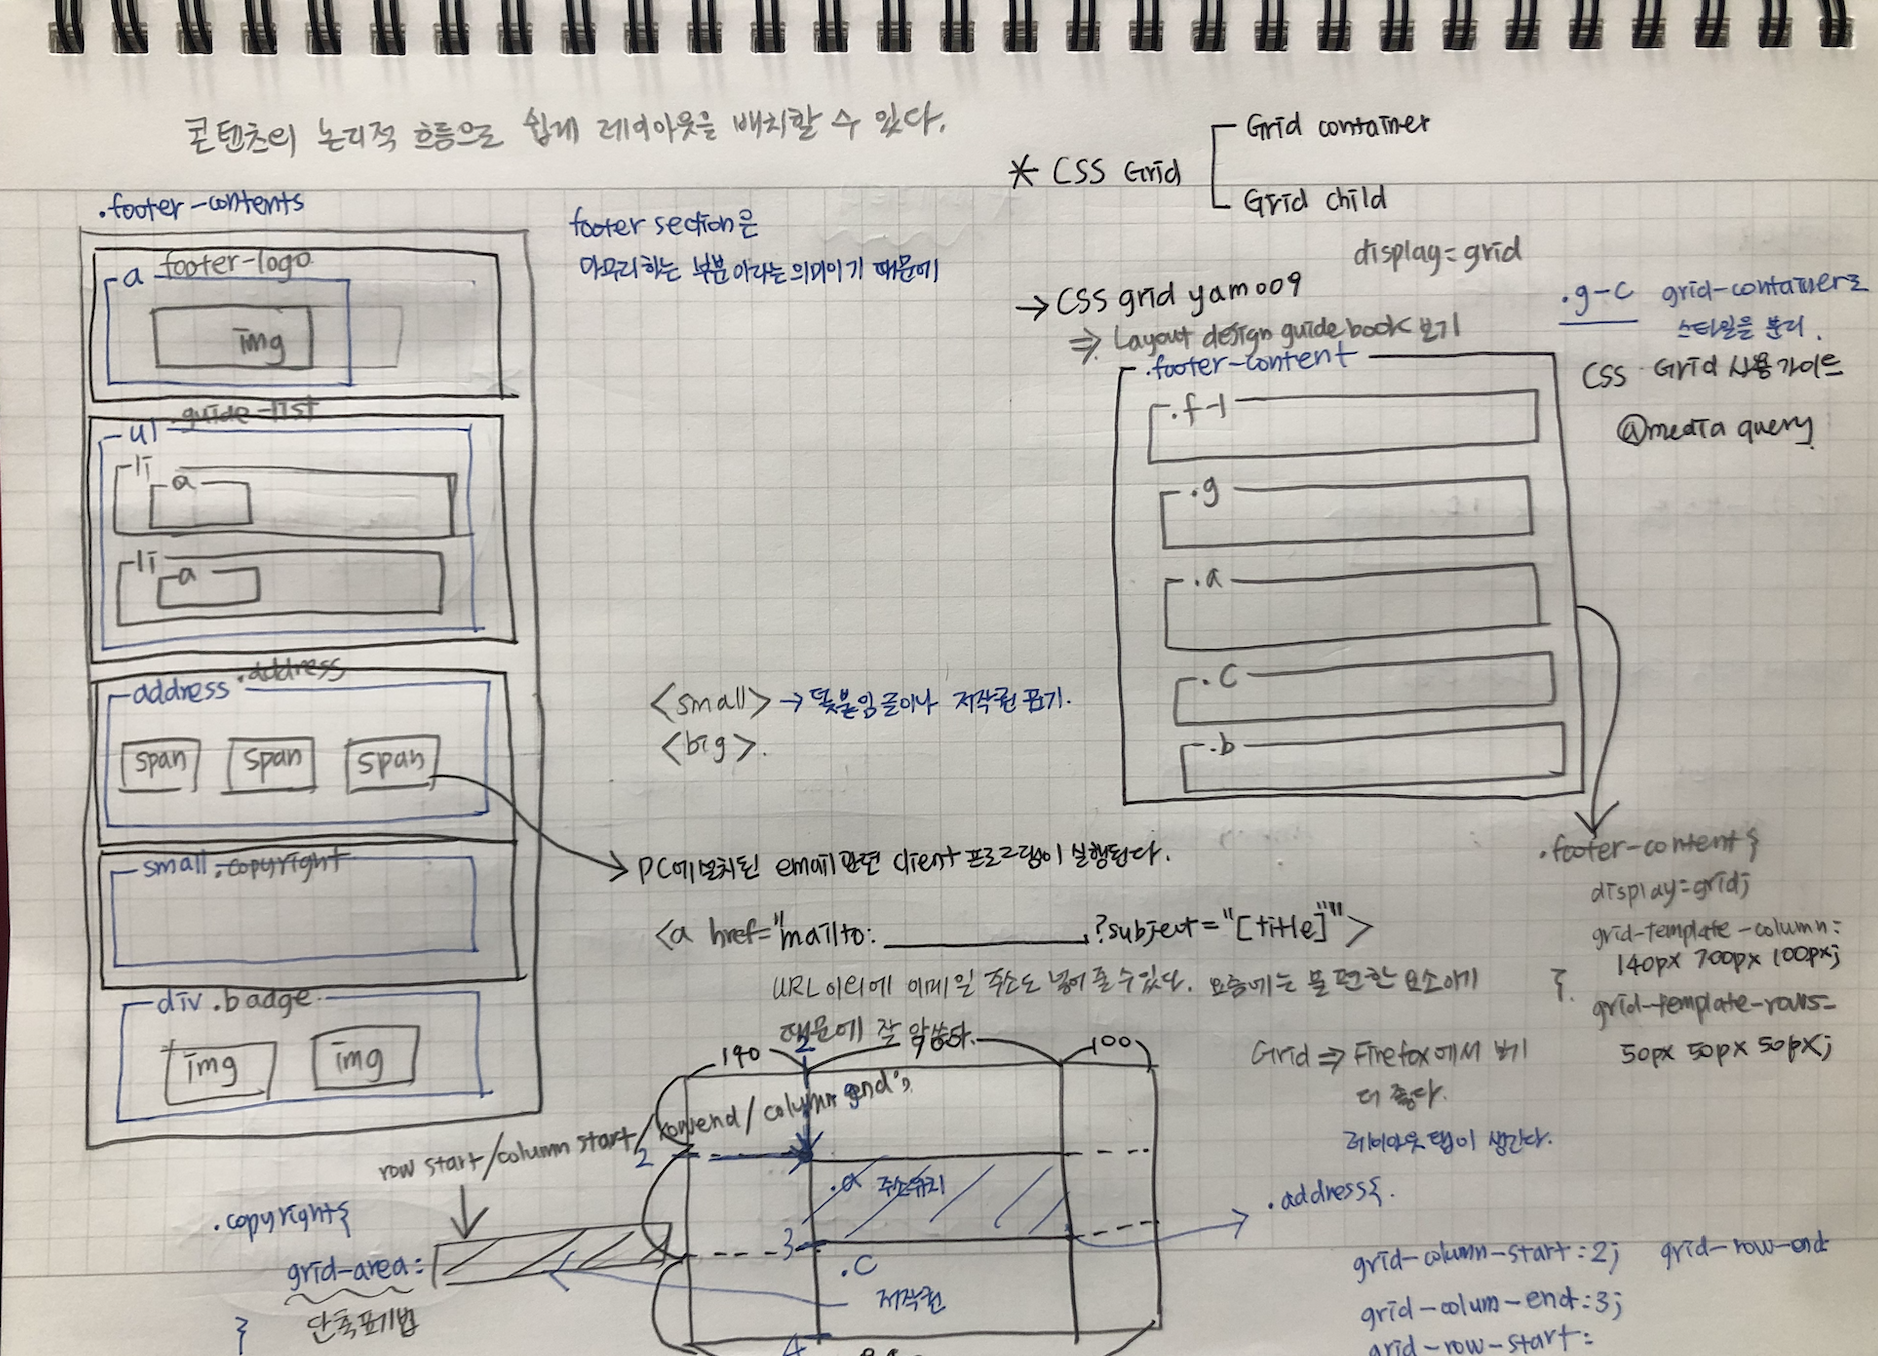 콘텐츠의 논리적 흐름으로 쉽게 레이아웃을 배치할 수 있다.
.footer-contents
footer-logo
a
img
.guide-list
ul
li
a
li
a
.address
address
span span span
small.copyright
div.badge
img img
footer section은
마무리하는 부분이라는 의미이기 때문에
* CSS Grid
Grid container
Grid child
display=grid
→ CSS grid yamoo9
⇒ Layout design guidebook 보기
.g-c grid-container로
스타일을 분리.
CSS Grid 사용가이드
@media query
.footer-content
.f-l
.g
.a
.c
.b
<small> → 덧붙임 글이나 저작권 표기.
<big>.
→ PC에 설치된 email 관련 client 프로그램이 실행된다.
<a href="mailto: ?subject="[title]"">
URL 이외에 이메일 주소도 넣어 줄 수 있다. 요즘에는 불편한 요소이기
때문에 잘 안쓴다.
.footer-content{
display=grid;
grid-template-column:
140px 700px 100px;
grid-template-rows=
50px 50px 50px;
}.
Grid ⇒ Firefox에서 보기
더 좋다.
레이아웃 탭이 생긴다.
140 2 100
row start/column start/rowend/column end;
2
.a 주소위치
3
.c
저작권
4
.copyright{
grid-area:
단축표기법
}
.address{.
grid-column-start:2; grid-row-end
grid-colum-end:3;
grid-row-start: